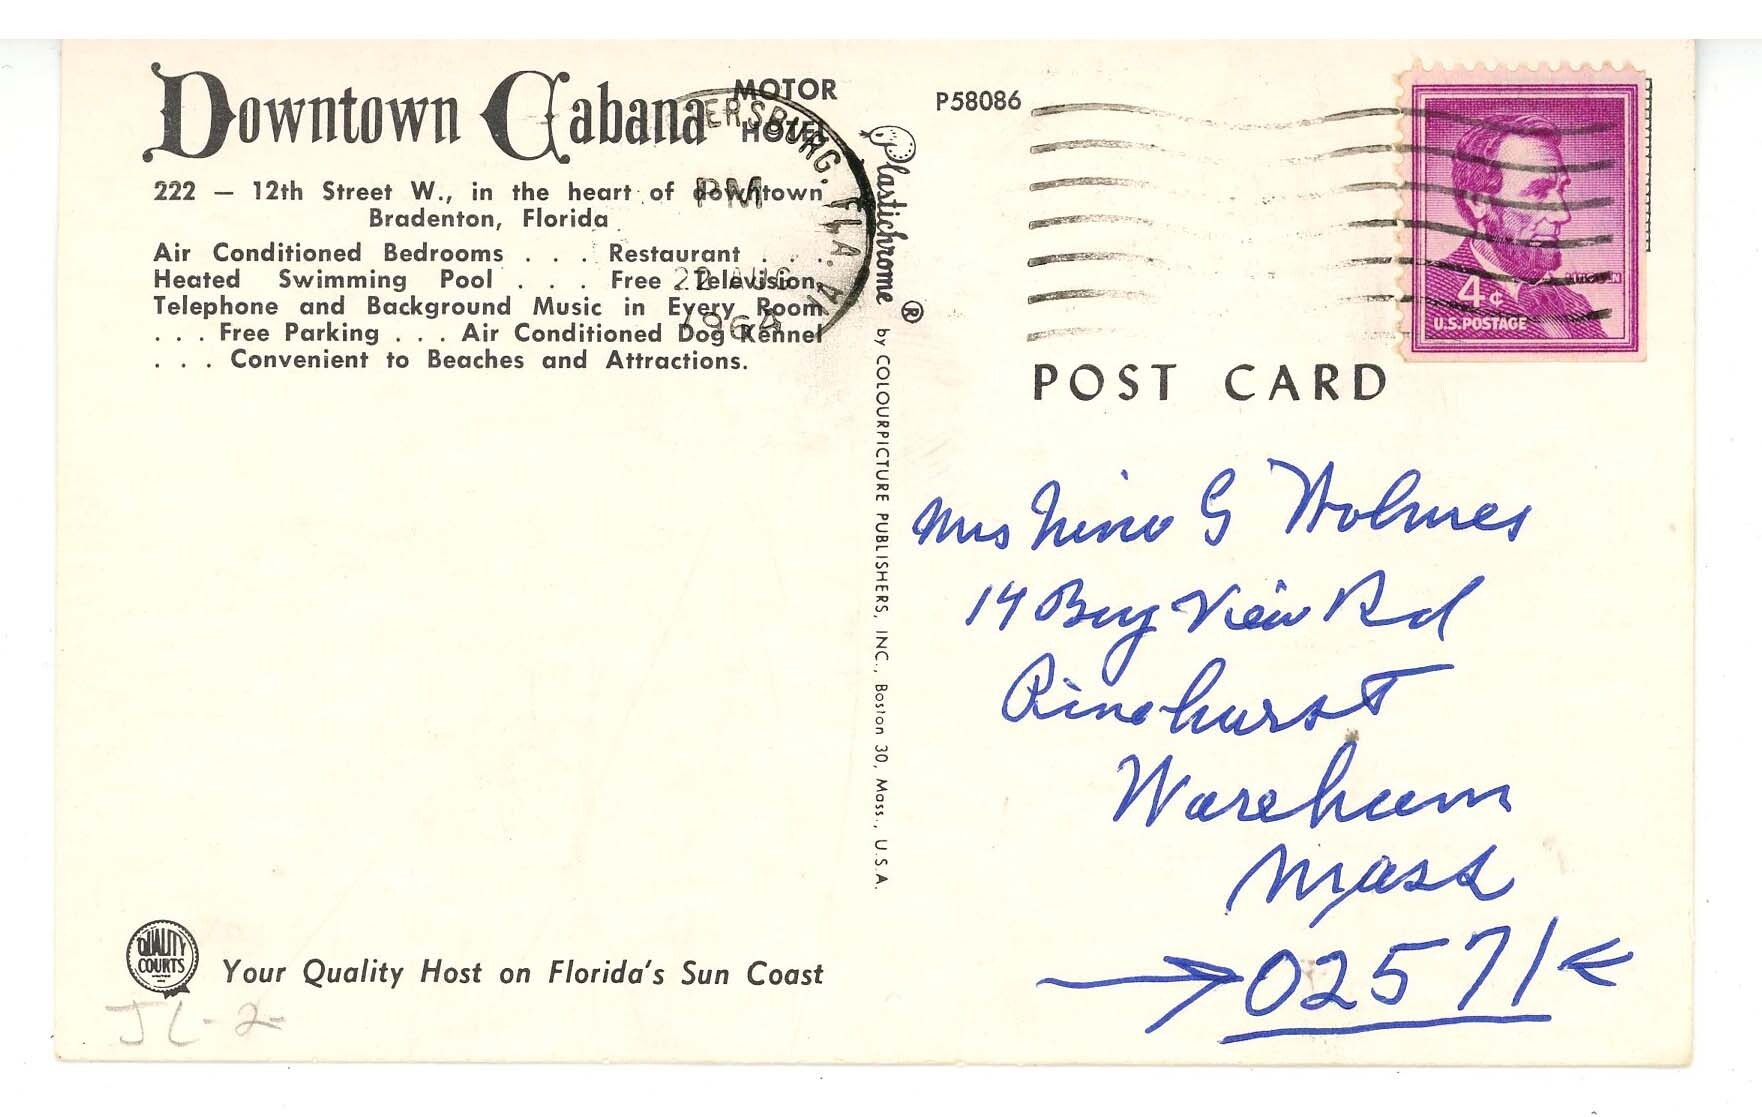 Downtown Cabana MOTOR HOTEL
222 — 12th Street W., in the heart of downtown
Bradenton, Florida
Air Conditioned Bedrooms . . . Restaurant . . .
Heated Swimming Pool . . . Free Television,
Telephone and Background Music in Every Room
. . . Free Parking . . . Air Conditioned Dog Kennel
. . . Convenient to Beaches and Attractions.
ERSBURG, FLA.
PM
22 AUG
1964
QUALITY
COURTS
Your Quality Host on Florida's Sun Coast
JL-2-
Plastichrome ® by COLOURPICTURE PUBLISHERS, INC., Boston 30, Mass., U.S.A.
P58086
LINCOLN
4¢
U.S. POSTAGE
POST CARD
Mrs Nina G Holmes
14 Bay View Rd
Pinehurst
Wareham
Mass
→ 02571 ←